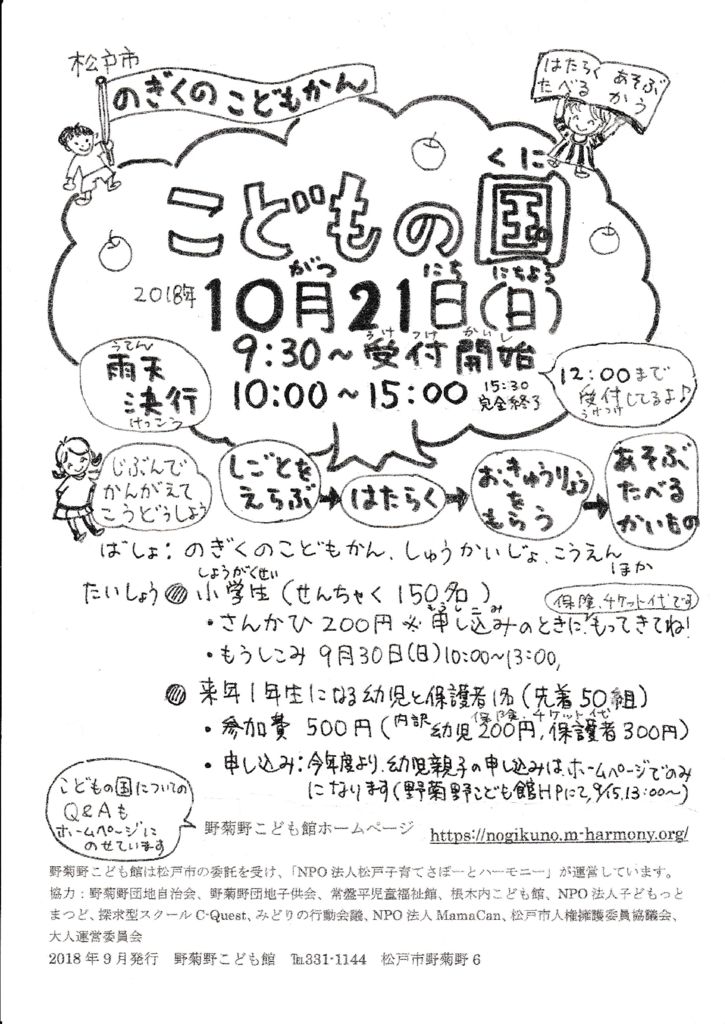 松戸市
のぎくのこどもかん
はたらく あそぶ
たべる かう
くに
こどもの国
がつ にち にちよう
2018年 10月21日(日)
うけつけ かいし
9:30～受付開始
10:00～15:00 15:30 完全終了
12:00まで
受付してるよ♪
うけつけ
うてん
雨天
決行
けっこう
じぶんで
かんがえて
こうどうしよう
しごとを
えらぶ
はたらく
おきゅうりょう
を
もらう
あそぶ
たべる
かいもの
ばしょ：のぎくのこどもかん、しゅうかいじょ、こうえん
ほか
しょうがくせい
たいしょう 小学生(せんちゃく150名)
保険、チケット代です
もうしこみ
・さんかひ 200円 ※申し込みのときに、もってきてね!
・もうしこみ 9月30日(日)10:00～13:00,
来年1年生になる幼児と保護者1名(先着50組)
保険、チケット代
・参加費 500円(内訳 幼児200円,保護者300円)
・申し込み：今年度より、幼児親子の申し込みは、ホームページでのみ
になります(野菊野こども館HPにて,9/15.13:00～)
こどもの国についての
Q&Aも
ホームページに
のせています
野菊野こども館ホームページ https://nogikuno.m-harmony.org/
野菊野こども館は松戸市の委託を受け、「NPO法人松戸子育てさぽーとハーモニー」が運営しています。
協力：野菊野団地自治会、野菊野団地子供会、常盤平児童福祉館、根木内こども館、NPO法人子どもっと
まつど、探求型スクールC-Quest、みどりの行動会議、NPO法人MamaCan、松戸市人権擁護委員協議会、
大人運営委員会
2018年9月発行 野菊野こども館 ℡331-1144 松戸市野菊野6